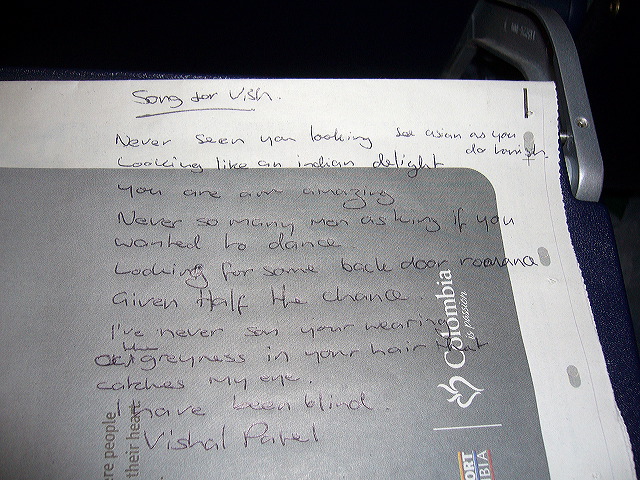 Song for Vish.
Never seen you looking so asian as you
do tonish.
Looking like an indian delight
You are am amazing
Never so many men asking if you
wanted to dance.
Looking for some back door romana
Given Half the chance.
I've never san your wearing
the
greyness in your hair that
catches my eye.
I have been blind.
Vishal Patel
Colombia
is passion
ere people
their heart.
ORT
MBIA